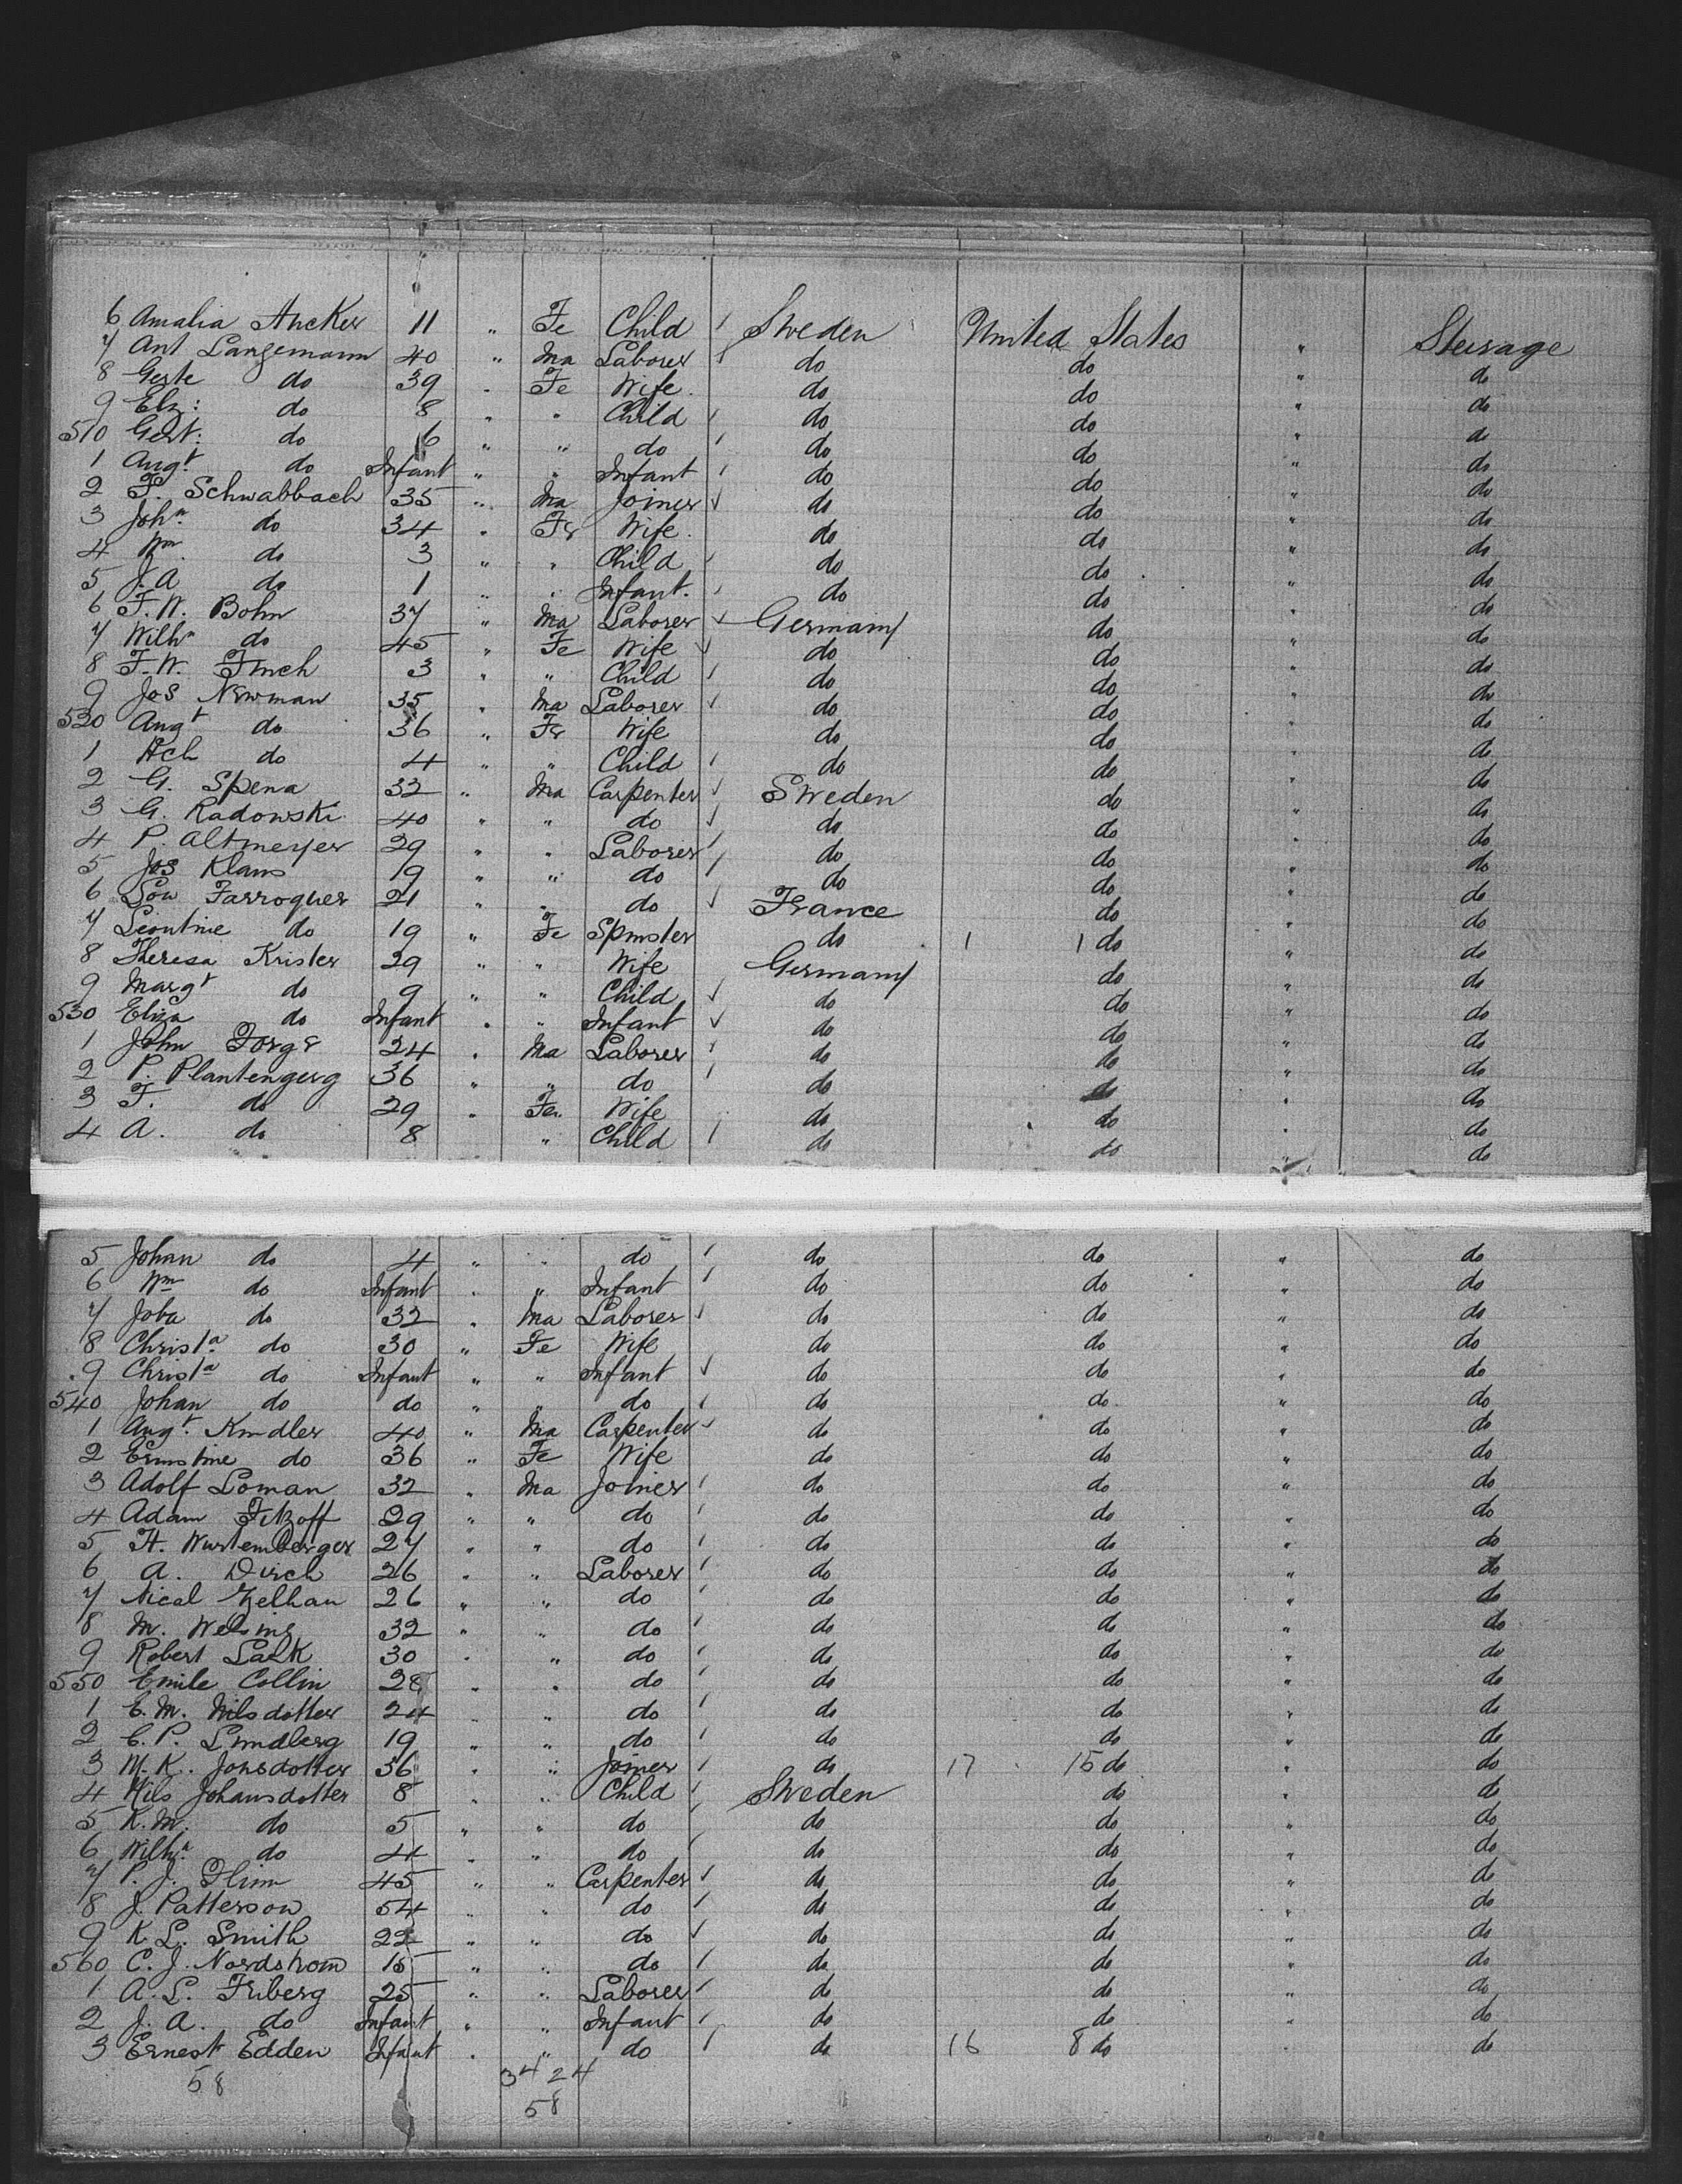 6 Amalia Ancker 11 " Fe Child Sweden United States " Steerage
7 Ant Langemann 40 " Ma Laborer do do " do
8 Gerte do 39 " Fe Wife do do " do
9 Elz: do 8 " " Child do do " do
510 Gert: do 6 " " do do do " do
1 Augt do Infant " " Infant do do " do
2 F. Schwabbach 35 " Ma Joiner do do " do
3 Joha do 34 " Fe Wife do do " do
4 Wm do 3 " " Child do do " do
5 J. A do 1 " " Infant. do do " do
6 F. W. Bohm 37 " Ma Laborer Germany do " do
7 Wilha do 45 " Fe Wife do do " do
8 F. W. Finch 3 " " Child do do " do
9 Jos Newman 35 " Ma Laborer do do " do
520 Augt do 36 " Fe Wife do do " do
1 Hch do 4 " " Child do do " do
2 G. Spena 32 " Ma Carpenter Sweden do " do
3 G. Radowski 40 " " do do do " do
4 P. Altmeyer 29 " " Laborer do do " do
5 Jos Klaus 19 " " do do do " do
6 Lou Farroquer 21 " " do France do " do
7 Leontine do 19 " Fe Spinster do 1 1 do " do
8 Theresa Krister 29 " " Wife Germany do " do
9 Margt do 9 " " Child do do " do
530 Eliza do Infant " " Infant do do " do
1 John Forge 24 " Ma Laborer do do " do
2 P. Plantengerg 36 " " do do do " do
3 F. do 29 " Fe Wife do do " do
4 A. do 8 " Child do do " do
5 Johan do 4 " " do do do " do
6 Wm do Infant " " Infant do do " do
7 Joha do 32 " Ma Laborer do do " do
8 Christa do 30 " Fe Wife do do " do
9 Christa do Infant " " Infant do do " do
540 Johan do do " " do do do " do
1 Augt. Kindler 40 " Ma Carpenter do do " do
2 Ernstine do 36 " Fe Wife do do " do
3 Adolf Loman 32 " Ma Joiner do do " do
4 Adam Fitzoff 29 " " do do do " do
5 H. Wurtemberger 27 " " do do do " do
6 A. Dirch 26 " " Laborer do do " do
7 Nical Zelhan 26 " " do do do " do
8 M. Welsing 32 " " do do do " do
9 Robert Lack 30 " " do do do " do
550 Emile Collin 28 " " do do do " do
1 E. M. Nilsdotter 24 " " do do do " do
2 C. P. Lindberg 19 " " do do do " do
3 M. K. Jonsdotter 36 " " Joiner do 17 15 do " do
4 Nils Johansdotter 8 " " Child Sweden do " do
5 K. M. do 5 " " do do do " do
6 Wilha do 4 " " do do do " do
7 P. J. Flinn 45 " " Carpenter do do " do
8 J. Patterson 54 " " do do do " do
9 K. L. Smith 22 " " do do do " do
560 C. J. Nordstrom 15 " " do do do " do
1 A. L. Friberg 25 " " Laborer do do " do
2 J. A. do Infant " " Infant do do " do
3 Ernest Edden Infant " " do do 16 8 do " do
58 34 24
58